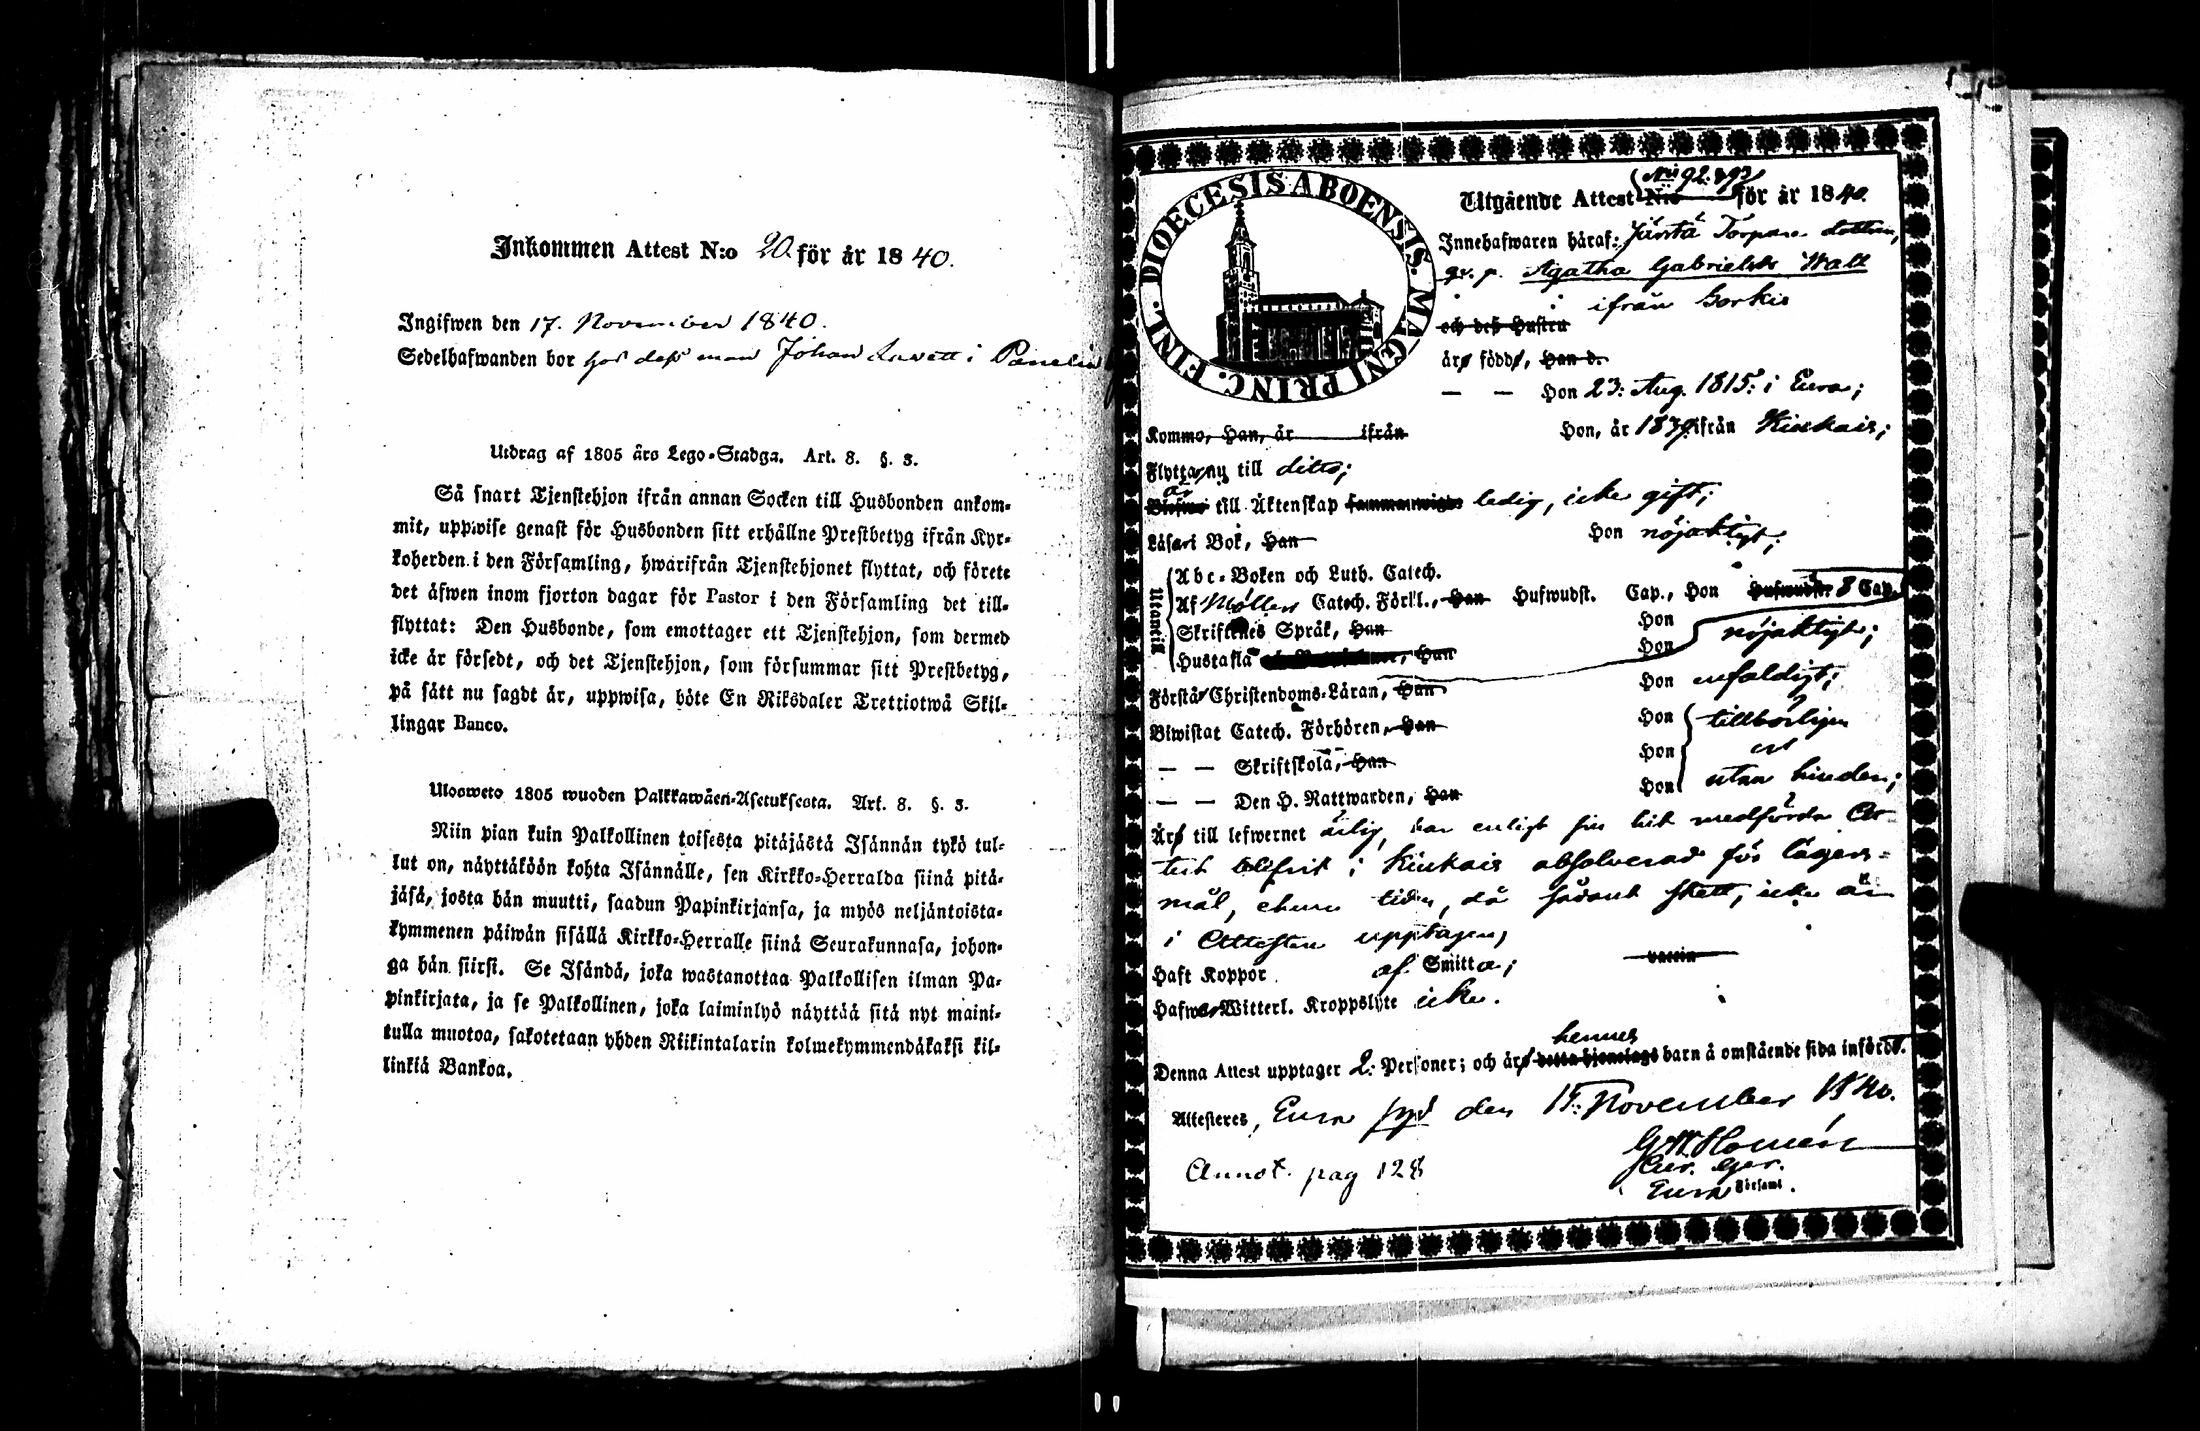 Inkommen Attest N:o 20. för år 1840.
Ingifwen den 17. November 1840.
Sedelhafwanden bor hos dess man Johan i
Utdrag af 1805 års Lego-Stadga. Art. 8. §. 3.
Så snart Tjenstehjon ifrån annan Socken till Husbonden ankom-
mit, uppwise genast för Husbonden sitt erhållne Prestbetyg ifrån Kyr-
koherden i den Församling, hwarifrån Tjenstehjonet flyttat, och förete
det äfwen inom fjorton dagar för Pastor i den Församling det till-
flyttat: Den Husbonde, som emottager ett Tjenstehjon, som dermed
icke är försedt, och det Tjenstehjon, som försummar sitt Prestbetyg,
på sätt nu sagdt är, uppwisa, böte En Riksdaler Trettiotwå Skil-
lingar Banco.
Ulosweto 1805 wuoden Palkkawäen-Asetuksesta. Art. 8. §. 3.
Niin pian kuin Palkollinen toisesta pitäjästä Isännän tykö tul-
lut on, näyttäköön kohta Isännälle, sen Kirkko-Herralda siinä pitä-
jäsä, josta hän muutti, saadun Papinkirjansa, ja myös neljäntoista-
kymmenen päiwän sisällä Kirkko-Herralle siinä Seurakunnasa, johon-
ga hän siirsi. Se Isändä, joka wastanottaa Palkollisen ilman Pa-
pinkirjata, ja se Palkollinen, joka laiminlyö näyttää sitä nyt maini-
tulla muotoa, sakotetaan yhden Riikintalarin kolmekymmendäkaksi kil-
linkiä Bankoa.
DIOECESIS ABOENSIS. MAGNI PRINC. FINL.
N:ris 92 & 93
Utgående Attest N:o för år 1840.
Innehafwaren häraf: Torpare dottern,
qv. p. Agatha Gabrielsdr Wall
ifrån
och deß Hustru
äro födde, Han d.
— — Hon 23: Aug. 1815: i Eura;
Kommo, Han, år ifrån Hon, år 1839 ifrån Kiukais;
Flytta, nu till ditto;
är
till Äktenskap ledig, icke gift;
Läsa i Bok, Han Hon nöjaktigt;
Utantill
Abc-Boken och Luth. Catech.
Af Möllers Catech. Förkl., Han Hufwudst. Cap., Hon Hufwudst. 8 Cap.
Skriftenes Språk, Han Hon nöjaktigt;
Hustafla Han Hon
Förstå Christendoms-Läran, Han Hon enfaldigt;
Biwistat Catech. Förhören, Han Hon tillbörligen
— — Skriftskola, Han Hon
— — Den H. Nattwarden, Han Hon utan hinder;
Äro till lefwernet ärlig, har enligt sin hit medförda At-
test blifvit i Kiukais absolverad för lägers-
mål, ehuru tiden, då sådant skett, icke är
i Attesten upptagen;
Haft Koppor af Smitta; vaccin
Hafwa Witterl. Kroppslyte icke.
hennes
Denna Attest upptager 2: Personer; och äro detta hjonelags barn å omstående sida införde.
Attesteres, Eura den 15: November 1840.
G. W. Homén
Eura Församl.
Annot. pag 128